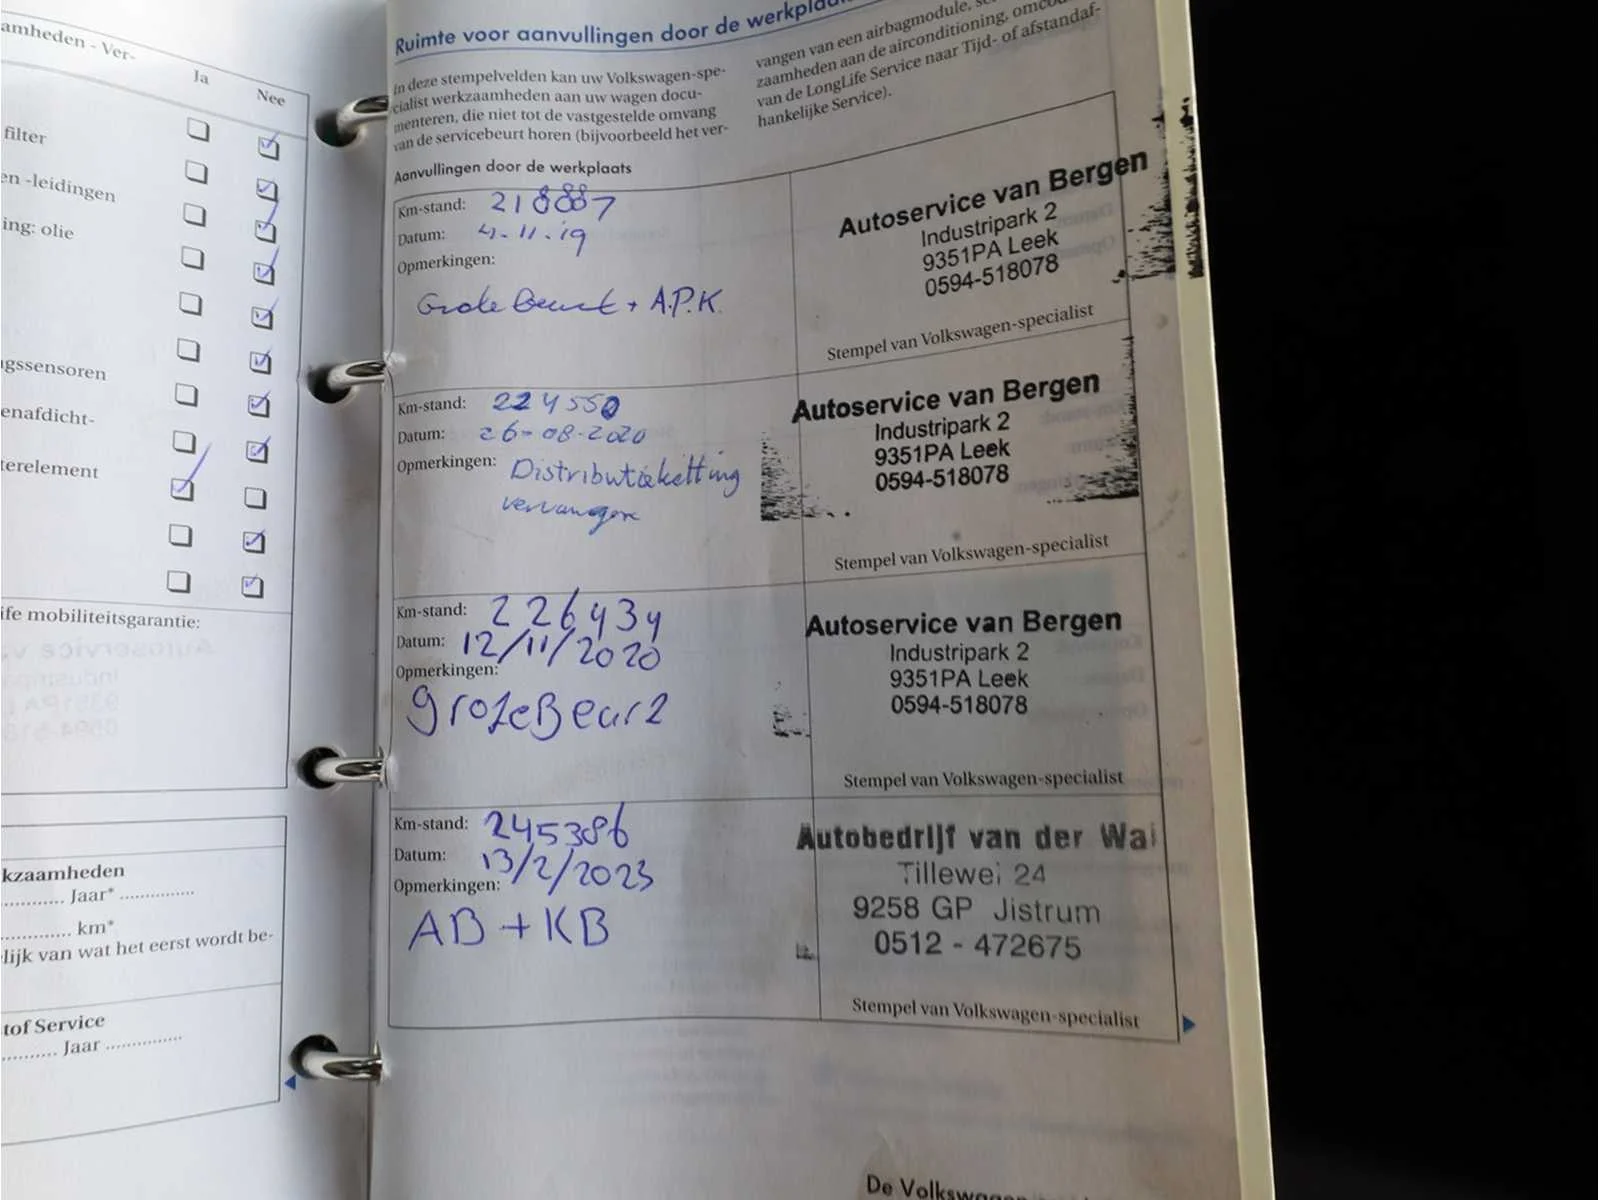 amheden - Ver-
Ja
Nee
filter
en -leidingen
ing: olie
gssensoren
enafdicht-
terelement
ife mobiliteitsgarantie:
kzaamheden
............ Jaar* ..............
............. km*
lijk van wat het eerst wordt be-
tof Service
........... Jaar ..............
Ruimte voor aanvullingen door de
In deze stempelvelden kan uw Volkswagen-spe-
cialist werkzaamheden aan uw wagen docu-
menteren, die niet tot de vastgestelde omvang
van de servicebeurt horen (bijvoorbeeld het ver-
vangen van een airbagmodule,
zaamheden aan de airconditioning,
van de LongLife Service naar Tijd- of afstandaf-
hankelijke Service).
Aanvullingen door de werkplaats
Km-stand: 218887
Datum: 4-11-19
Opmerkingen:
Grote beurt + A.P.K.
Autoservice van Bergen
Industripark 2
9351PA Leek
0594-518078
Stempel van Volkswagen-specialist
Km-stand: 224550
Datum: 26-08-2020
Opmerkingen: Distributieketting
vervangen
Autoservice van Bergen
Industripark 2
9351PA Leek
0594-518078
Stempel van Volkswagen-specialist
Km-stand: 226434
Datum: 12/11/2020
Opmerkingen:
groteBeurt
Autoservice van Bergen
Industripark 2
9351PA Leek
0594-518078
Stempel van Volkswagen-specialist
Km-stand: 245386
Datum: 13/2/2023
Opmerkingen:
AB + KB
Autobedrijf van der Wal
Tillewei 24
9258 GP Jistrum
0512 - 472675
Stempel van Volkswagen-specialist
De